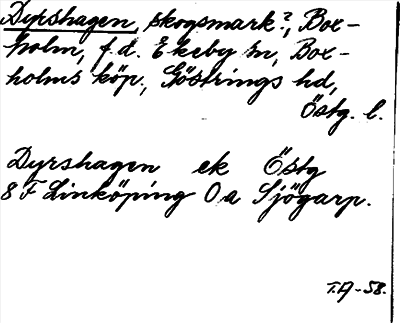 Dyrshagen, skogsmark?, Box-
holm, f.d. Ekeby sn, Box-
holms köp., Göstrings hd,
Östg. l.
Dyrshagen ek Östg
8 F Linköping O a Sjögarp.
T.A-58.